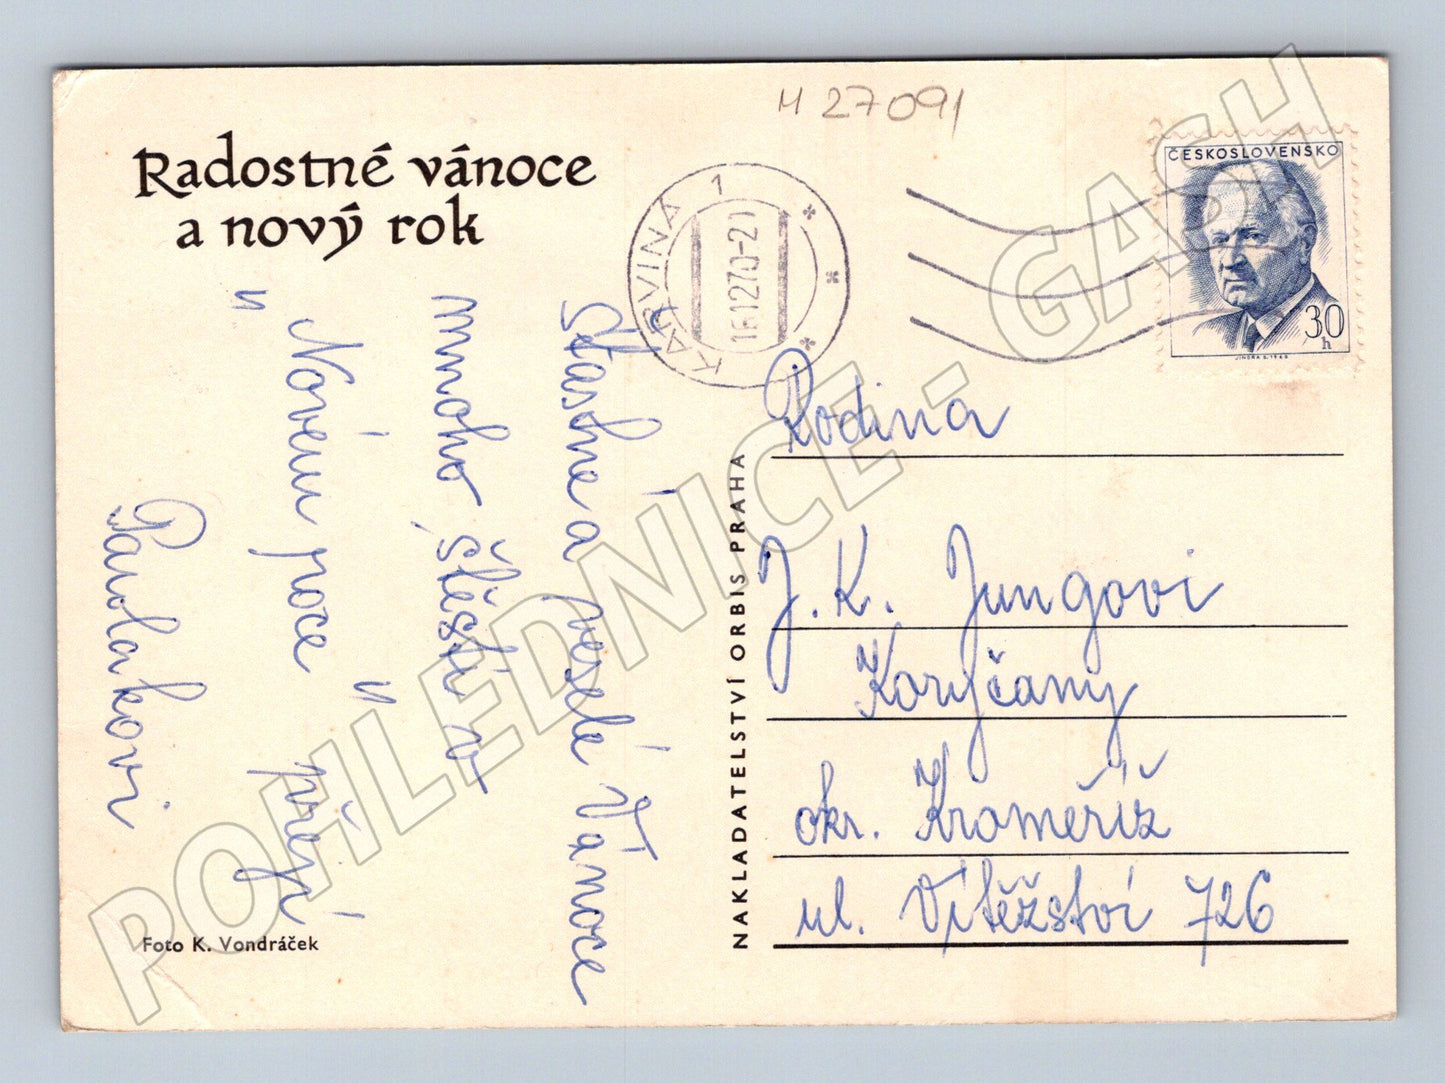 Radostné vánoce
a nový rok
M 27091
KARVINÁ 1
16.12.70-21
ČESKOSLOVENSKO
30
h
JINDRA S. 1968
Šťastné a veselé Vánoce
mnoho štěstí v
"Novém roce" přejí
Pavlakovi
Rodina
J. K. Jungovi
Koryčany
okr. Kroměříž
ul. Vítěžství 726
NAKLADATELSTVÍ ORBIS PRAHA
Foto K. Vondráček
POHLEDNICE - GASH